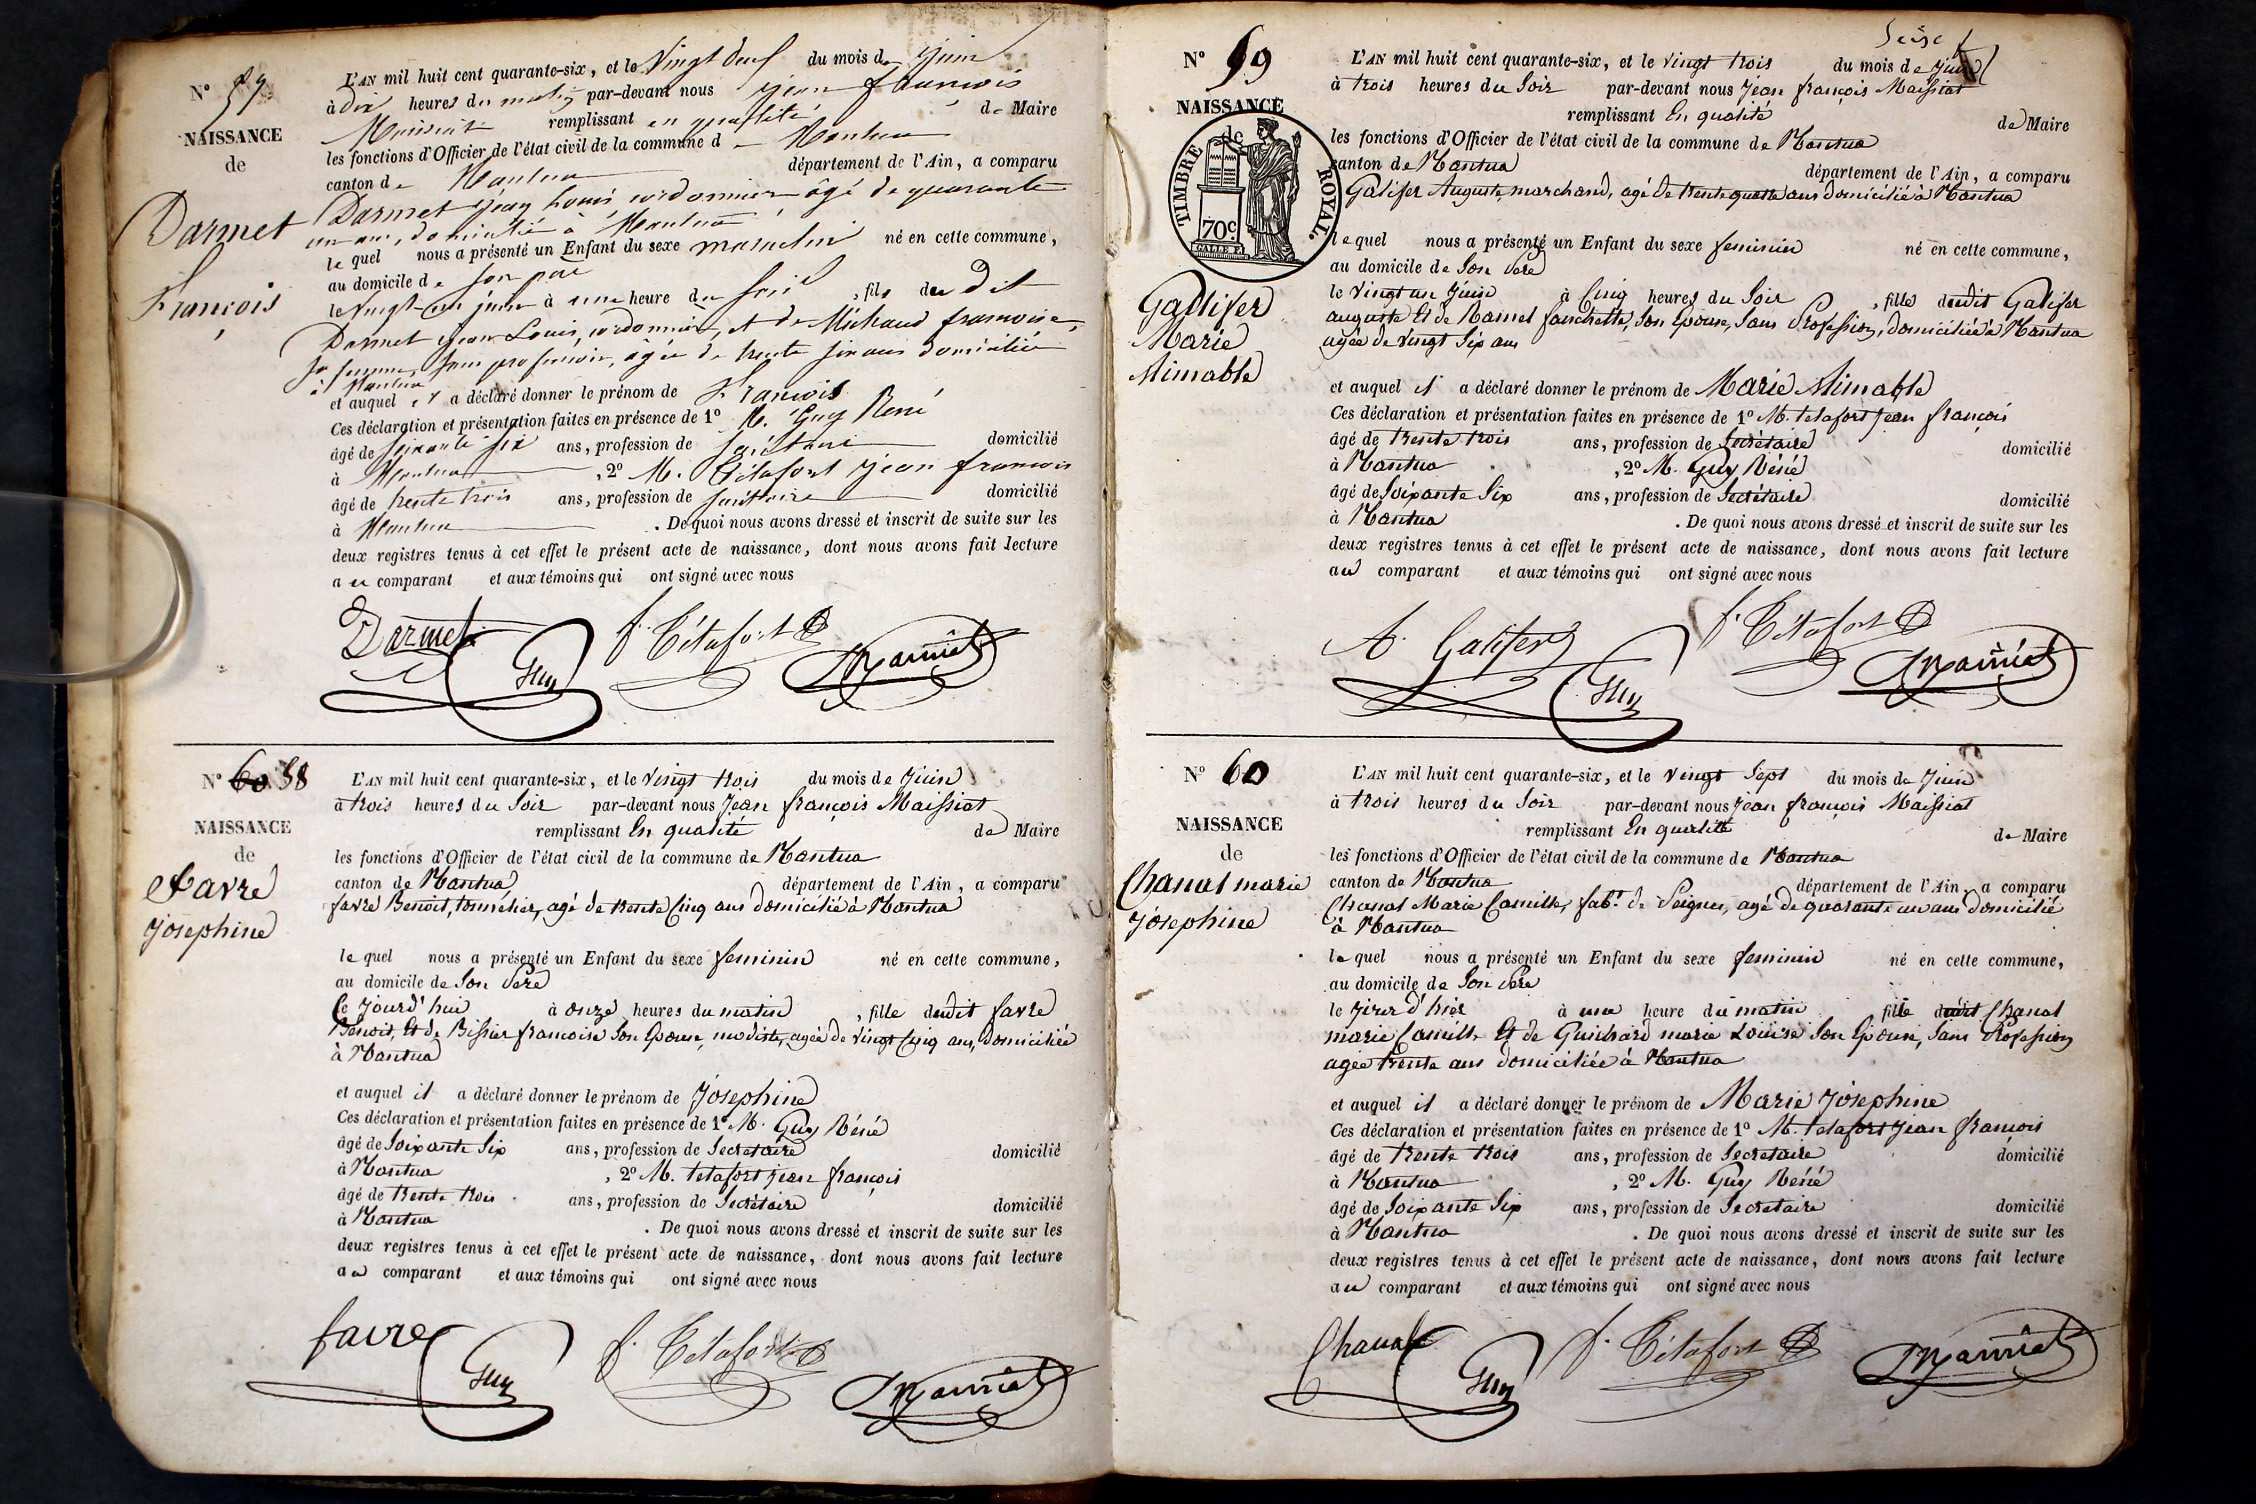 N° 57
NAISSANCE
de
Darmet
François
L'AN mil huit cent quarante-six, et le Vingt deux du mois de Juin
à dix heures du matin par-devant nous Jean françois
Maissiat remplissant en qualité de Maire
les fonctions d'Officier de l'état civil de la commune de Mantua
canton de Mantua département de l'Ain, a comparu
Darmet Jean Louis, cordonnier âgé de quarante
un ans, domicilié à Mantua
le quel nous a présenté un Enfant du sexe masculin né en cette commune,
au domicile de son père
le vingt-un juin à une heure du soir, fils du dit
Darmet Jean Louis, cordonnier, et de Michaud françoise,
sa femme, sans profession, âgée de trente six ans domiciliée
à Mantua
et auquel il a déclaré donner le prénom de François
Ces déclaration et présentation faites en présence de 1° M. Guy René
âgé de soixante six ans, profession de secrétaire domicilié
à Mantua, 2° M. Tétafort Jean françois
âgé de trente trois ans, profession de secrétaire domicilié
à Mantua. De quoi nous avons dressé et inscrit de suite sur les
deux registres tenus à cet effet le présent acte de naissance, dont nous avons fait lecture
au comparant et aux témoins qui ont signé avec nous
Darmet Guy f. Tétafort Maissiat
N° 60 58
NAISSANCE
de
Favre
Josephine
L'AN mil huit cent quarante-six, et le vingt trois du mois de Juin
à trois heures du Soir par-devant nous Jean françois Maissiat
remplissant En qualité de Maire
les fonctions d'Officier de l'état civil de la commune de Mantua
canton de Mantua département de l'Ain, a comparu
favre Benoit, tonnelier, agé de trente Cinq ans domicilié à Mantua
le quel nous a présenté un Enfant du sexe feminin né en cette commune,
au domicile de Son Père
Ce Jourd'hui à onze heures du matin, fille dudit favre
Benoit, Et de Bissier françoise Son Epouse, modiste, agée de vingt Cinq ans, domiciliée
à Mantua
et auquel il a déclaré donner le prénom de Josephine
Ces déclaration et présentation faites en présence de 1° M. Guy Réné
âgé de Soixante Six ans, profession de Secretaire domicilié
à Mantua, 2° M. tetafort jean françois
âgé de trente trois ans, profession de Secrétaire domicilié
à Mantua. De quoi nous avons dressé et inscrit de suite sur les
deux registres tenus à cet effet le présent acte de naissance, dont nous avons fait lecture
au comparant et aux témoins qui ont signé avec nous
favre Guy f. Tétafort Maissiat
Seize
N° 59
NAISSANCE
de
TIMBRE ROYAL.
70c.
Gallifer
Marie
Mimable
L'AN mil huit cent quarante-six, et le vingt trois du mois de Juin
à trois heures du Soir par-devant nous Jean françois Maissiat
remplissant En qualité de Maire
les fonctions d'Officier de l'état civil de la commune de Mantua
canton de Mantua département de l'Ain, a comparu
Galifer Auguste, marchand, agé de trente quatre ans domicilié à Mantua
le quel nous a présenté un Enfant du sexe feminin né en cette commune,
au domicile de Son Père
le vingt un Juin à Cinq heures du Soir, fille dudit Galifer
auguste Et de Hamel fanchette, Son Epouse, Sans Profession, domiciliée à Mantua
agée de vingt Six ans
et auquel il a déclaré donner le prénom de Marie Mimable
Ces déclaration et présentation faites en présence de 1° M. tetafort Jean françois
âgé de trente trois ans, profession de Secrétaire domicilié
à Mantua, 2° M. Guy Réné
âgé de Soixante Six ans, profession de Secrétaire domicilié
à Mantua. De quoi nous avons dressé et inscrit de suite sur les
deux registres tenus à cet effet le présent acte de naissance, dont nous avons fait lecture
au comparant et aux témoins qui ont signé avec nous
A. Galifer Guy f. Tétafort Maissiat
N° 60
NAISSANCE
de
Chanal marie
Josephine
L'AN mil huit cent quarante-six, et le vingt Sept du mois de Juin
à trois heures du Soir par-devant nous Jean françois Maissiat
remplissant En qualité de Maire
les fonctions d'Officier de l'état civil de la commune de Mantua
canton de Mantua département de l'Ain, a comparu
Chanal Marie Camille, fabt. de Peignes, agé de quarante un ans domicilié
à Mantua
le quel nous a présenté un Enfant du sexe feminin né en cette commune,
au domicile de Son Père
le jour d'hier à une heure du matin fille dudit Chanal
marie Camille Et de Guichard marie Louise Son Epouse, Sans Profession
agée trente ans domiciliée à Mantua
et auquel il a déclaré donner le prénom de Marie Josephine
Ces déclaration et présentation faites en présence de 1° M. tetafort jean françois
âgé de trente trois ans, profession de Secretaire domicilié
à Mantua, 2° M. Guy Réné
âgé de Soixante Six ans, profession de Secretaire domicilié
à Mantua. De quoi nous avons dressé et inscrit de suite sur les
deux registres tenus à cet effet le présent acte de naissance, dont nous avons fait lecture
au comparant et aux témoins qui ont signé avec nous
Chanal Guy f. Tétafort Maissiat